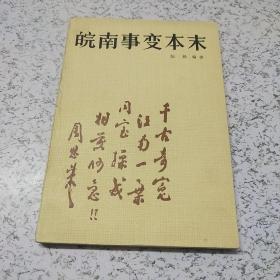 皖南事变本末
编著
千古奇冤
江南一叶
同室操戈
相煎何急!!
周恩来